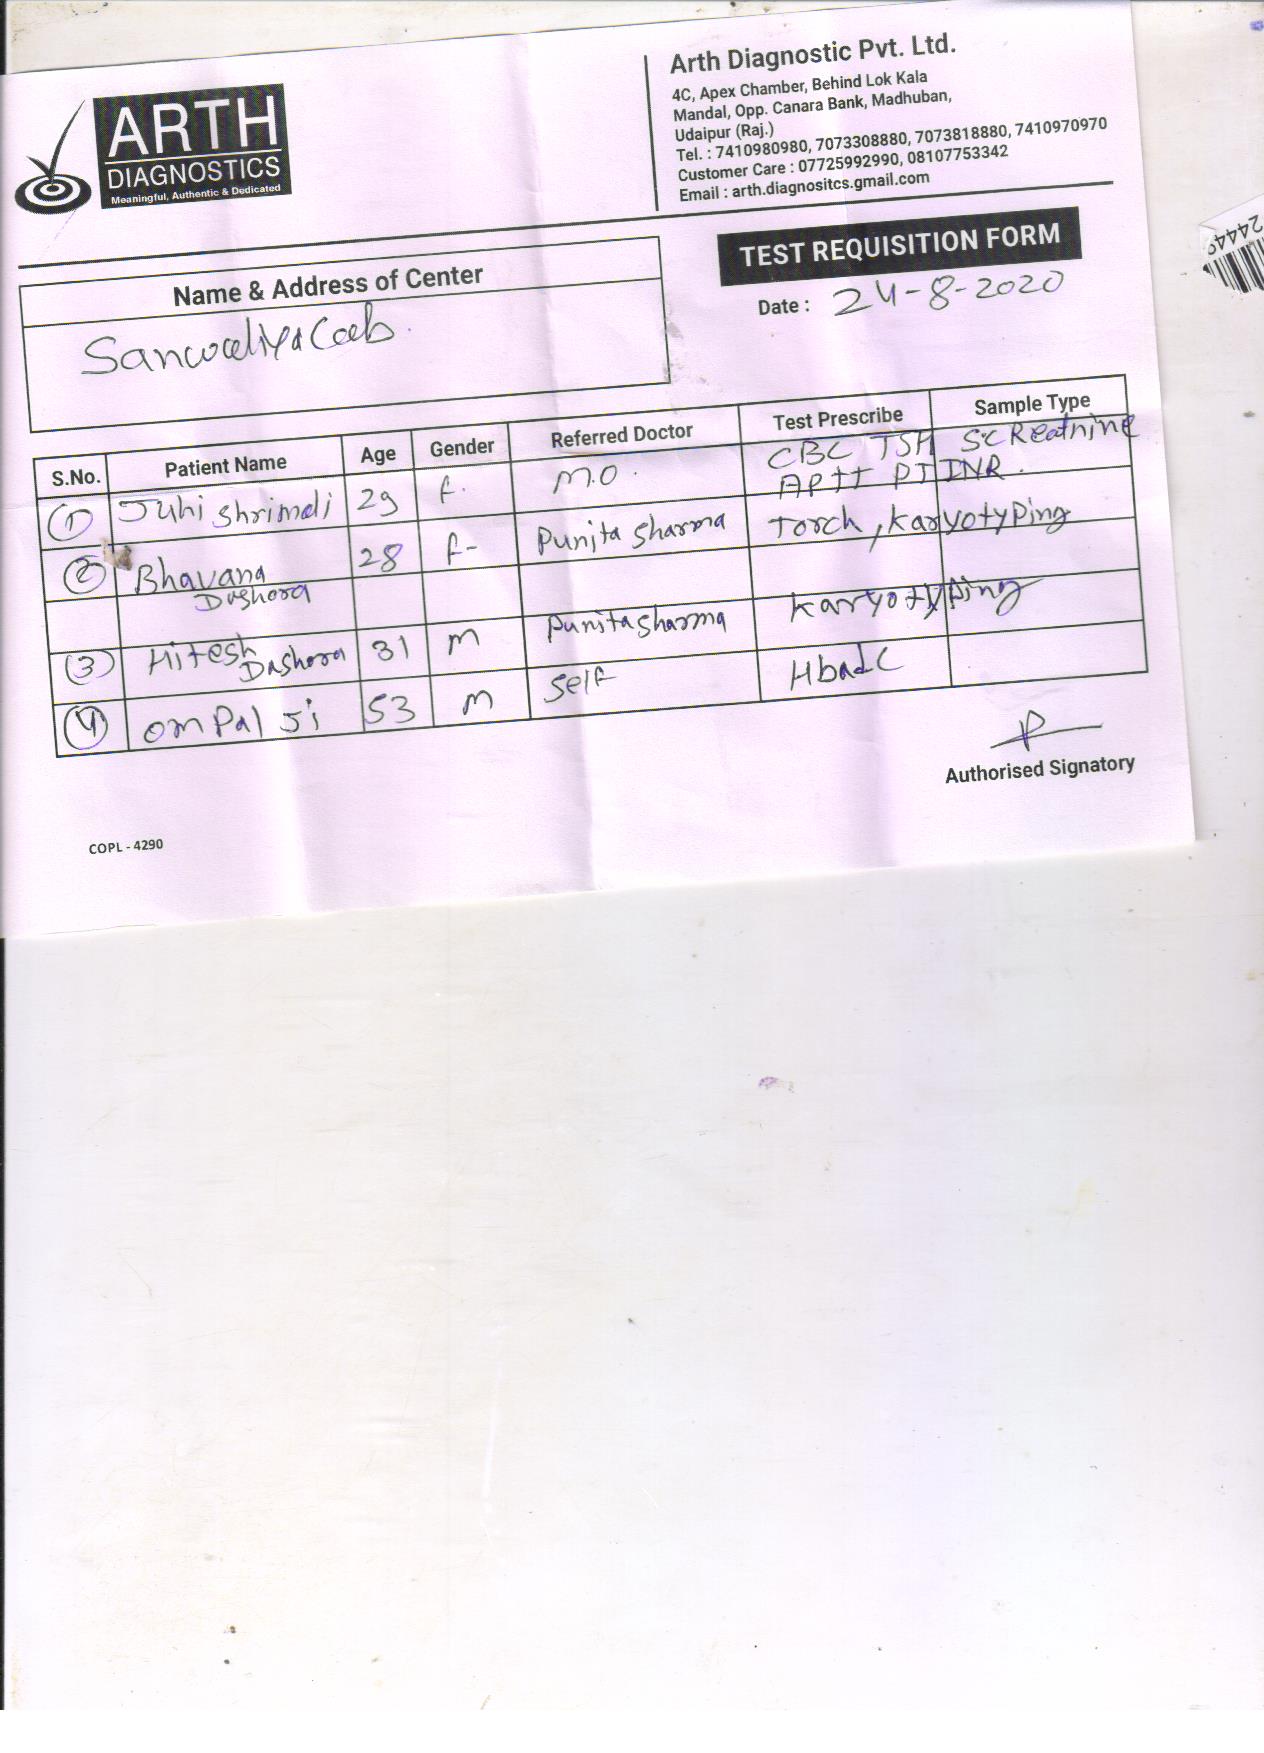 ARTH
DIAGNOSTICS
Meaningful, Authentic & Dedicated
Arth Diagnostic Pvt. Ltd.
4C, Apex Chamber, Behind Lok Kala
Mandal, Opp. Canara Bank, Madhuban,
Udaipur (Raj.)
Tel. : 7410980980, 7073308880, 7073818880, 7410970970
Customer Care : 07725992990, 08107753342
Email : arth.diagnositcs.gmail.com
TEST REQUISITION FORM
Date : 24-8-2020
Name & Address of Center
S.No. Patient Name Age Gender Referred Doctor Test Prescribe Sample Type
1 Juhi Shrimali 29 f. M.O. CBC TSH S.CReatnine
APTT PT INR.
2 Bhavana 28 f- Punita Sharma Torch, Karyotyping
Dashora
3 Hitesh 31 M Punita Sharma Karyotyping
Dashora
4 Om Pal Ji 53 M Self
Authorised Signatory
COPL - 4290